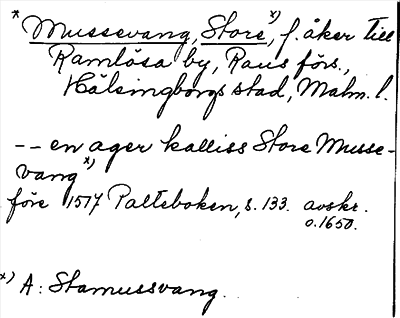 * Mussevang, Store x), f. åker till
Ramlösa by, Raus förs.,
Hälsingborgs stad, Malm. l.
-- en ager kalliss Store Musse-
vang x)
före 1517 Palteboken, s. 133. avskr.
o. 1650.
x) A: Stamussvang.